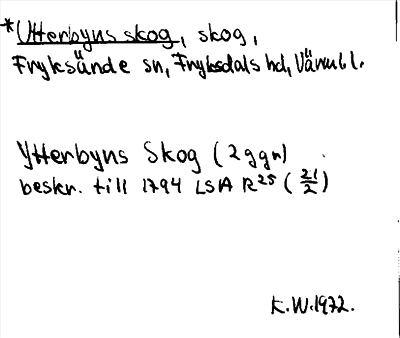 *Utterbyns skog, skog,
Fryksände sn, Fryksdals hd, Värml.
Ytterbyns Skog (2 ggr)
beskr. till 1794 LSA R25 (21/2)
K.W. 1972.